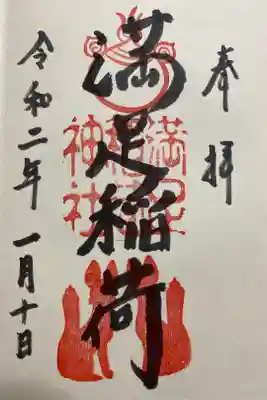 奉拝
満足稲荷
満足稲荷神社
令和二年 一月十日